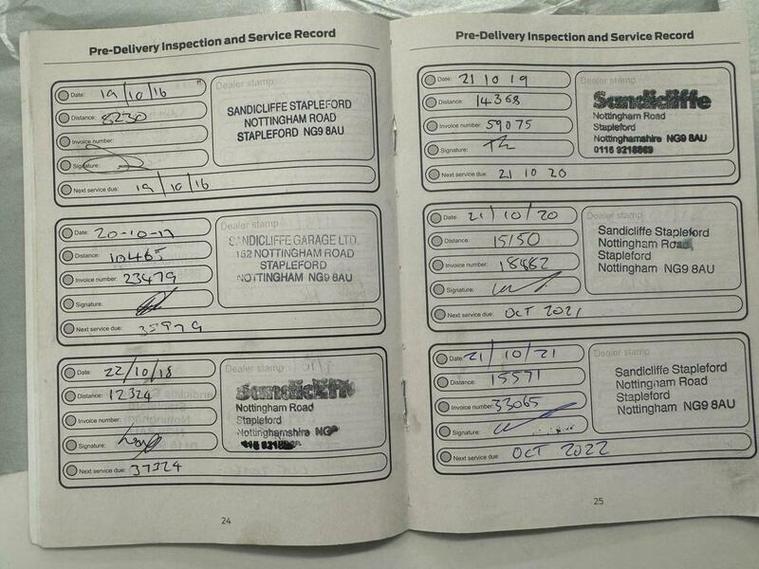 Pre-Delivery Inspection and Service Record
Date: 19/10/16
Distance: 8230
Invoice number:
Signature:
Next service due: 19/10/16
Dealer stamp:
SANDICLIFFE STAPLEFORD
NOTTINGHAM ROAD
STAPLEFORD NG9 8AU
Date: 20-10-17
Distance: 10465
Invoice number: 23479
Signature:
Next service due: 35979
Dealer stamp
SANDICLIFFE GARAGE LTD.
152 NOTTINGHAM ROAD
STAPLEFORD
NOTTINGHAM NG9 8AU
Date: 22/10/18
Distance: 12324
Invoice number:
Signature:
Next service due: 37324
Dealer stamp
Sandicliffe
Nottingham Road
Stapleford
Nottinghamshire NG9
24
Pre-Delivery Inspection and Service Record
Date: 21 10 19
Distance: 14368
Invoice number: 59075
Signature:
Next service due: 21 10 20
Dealer stamp
Sandicliffe
Nottingham Road
Stapleford
Nottinghamshire NG9 8AU
0115 9218869
Date: 21/10/20
Distance: 15150
Invoice number: 18482
Signature:
Next service due: OCT 2021
Dealer stamp
Sandicliffe Stapleford
Nottingham Road
Stapleford
Nottingham NG9 8AU
Date: 21/10/21
Distance: 15571
Invoice number: 33065
Signature:
Next service due: OCT 2022
Dealer stamp
Sandicliffe Stapleford
Nottingham Road
Stapleford
Nottingham NG9 8AU
25